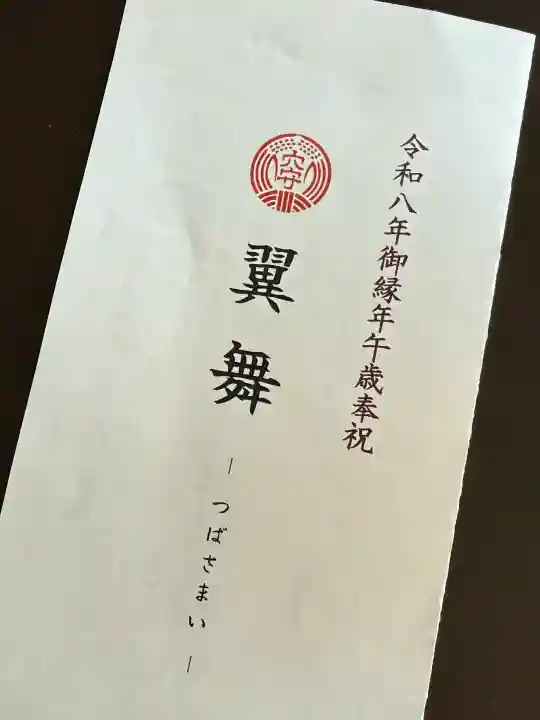 令和八年御縁年午歳奉祝
穴守
翼舞
－つばさまい－